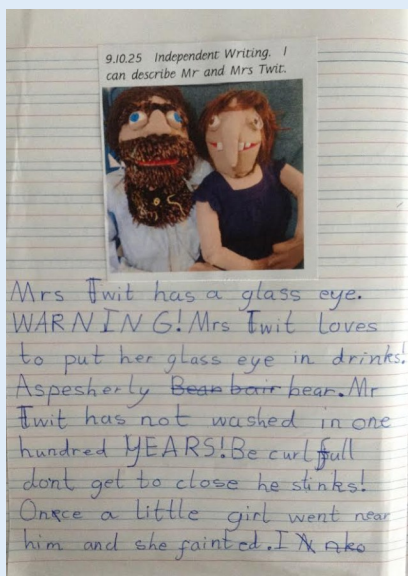 9.10.25 Independent Writing. I
can describe Mr and Mrs Twit.
Mrs Twit has a glass eye.
WARNING! Mrs Twit Loves
to put her glass eye in drinks!
Aspesherly Bear bair bear. Mr
Twit has not washed in one
hundred YEARS! Be curl full
dont get to close he stinks!
Once a little girl went near
him and she fainted. I